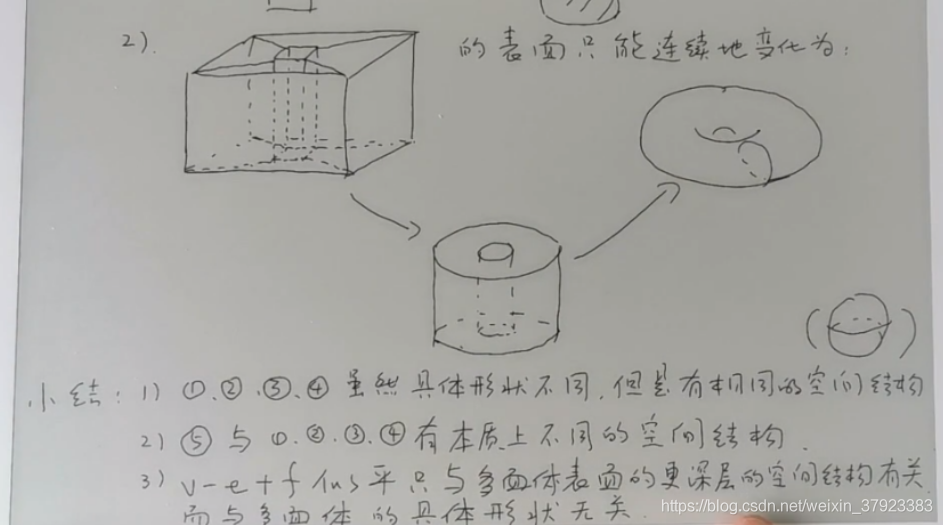 2). 的表面只能连续地变化为:
小结: 1) ①.②.③.④ 虽然具体形状不同,但是有相同的空间结构
2) ⑤ 与 ①.②.③.④ 有本质上不同的空间结构.
3) v-e+f 只与多面体表面的更深层的空间结构有关
而与多面体的具体形状无关.
https://blog.csdn.net/weixin_37923383